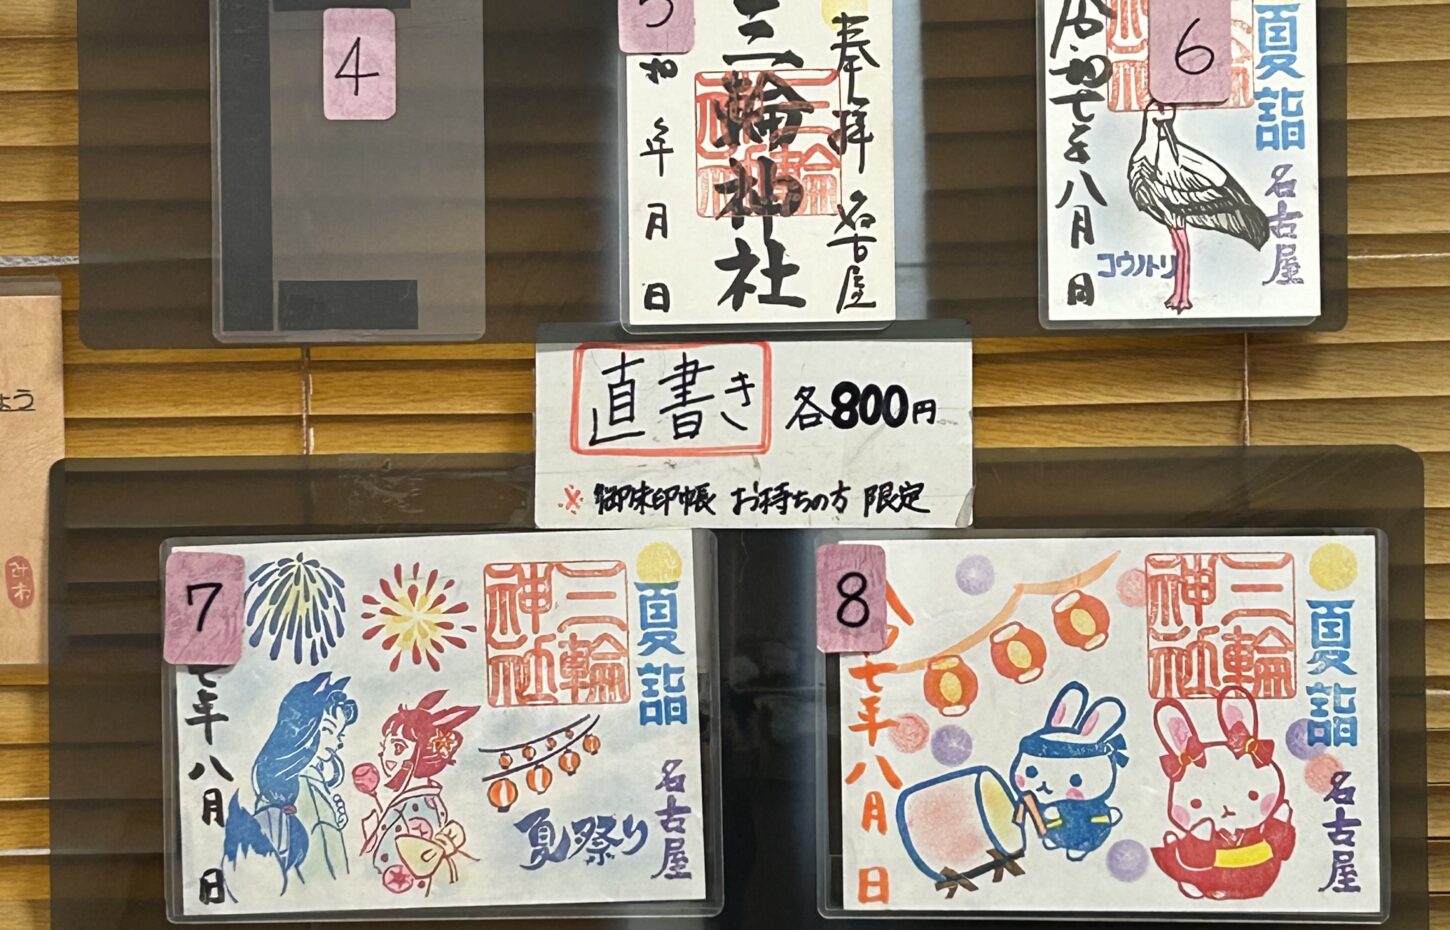 4
5
和 年 月 日
三輪神社
奉拝 名古屋
三輪神社
6
令和七年八月 日
コウノトリ
夏詣
名古屋
ょう
みわ
直書き 各800円
※御朱印帳 お持ちの方 限定
7
七年八月 日
三輪神社
夏詣
名古屋
夏祭り
8
令 七年八月 日
三輪神社
夏詣
名古屋